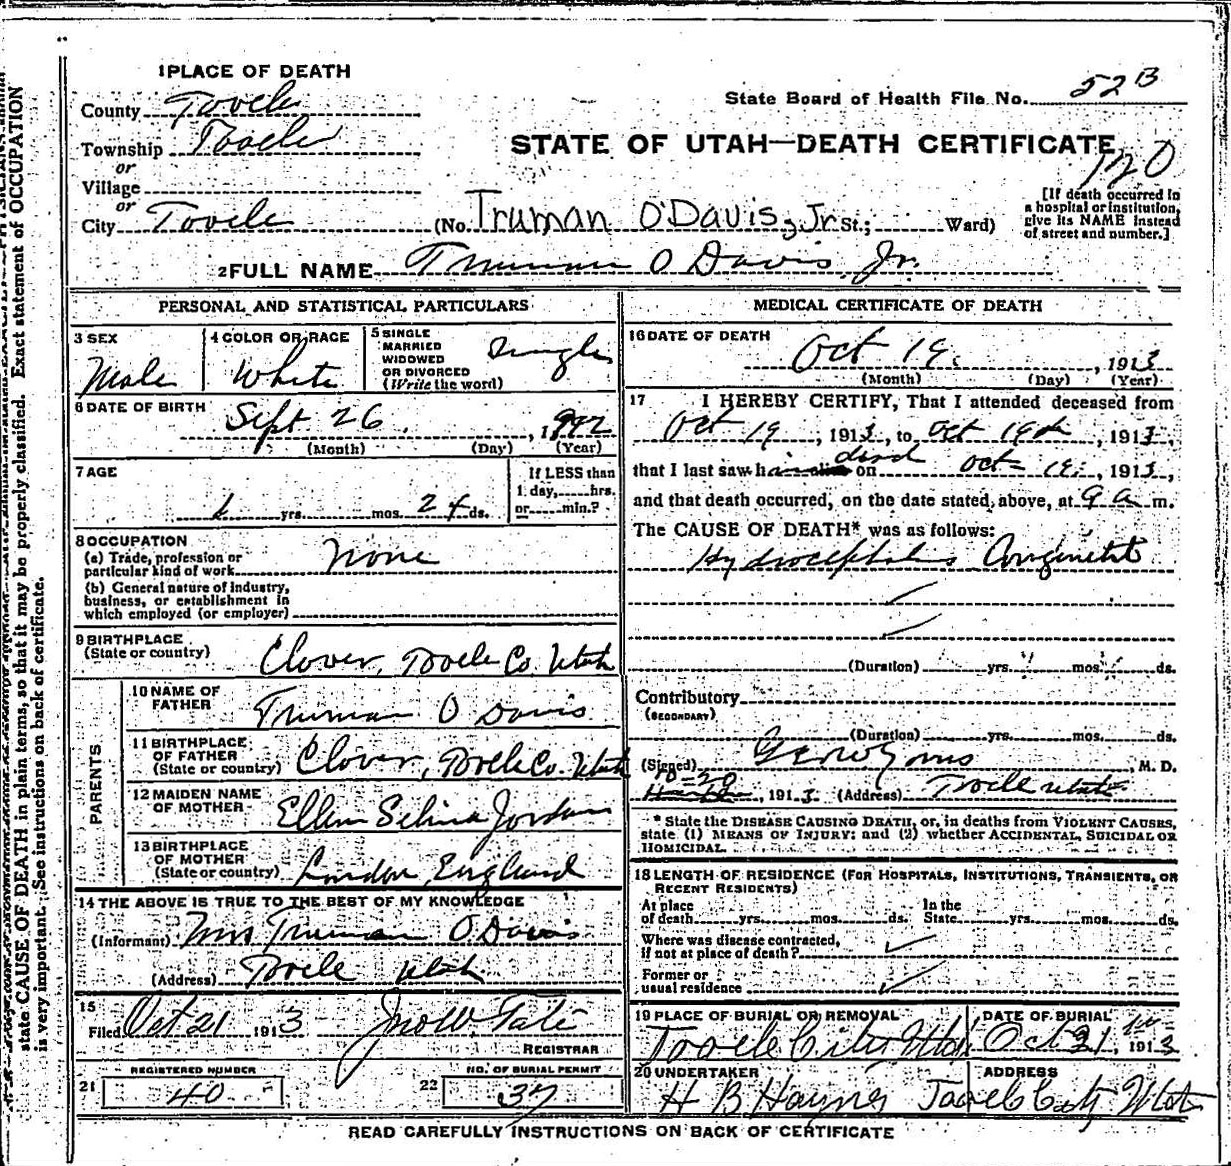 1 PLACE OF DEATH
County Tooele
State Board of Health File No. 52 B
Township Tooele
STATE OF UTAH—DEATH CERTIFICATE
120
or
Village
or
[If death occurred in a hospital or institution, give its NAME instead of street and number.]
City Tooele (No. Truman O Davis, Jr St.; Ward)
2 FULL NAME Truman O Davis Jr.
PERSONAL AND STATISTICAL PARTICULARS
3 SEX Male
4 COLOR OR RACE White
5 SINGLE MARRIED WIDOWED OR DIVORCED (Write the word) Single
6 DATE OF BIRTH Sept 26, 1912
(Month) (Day) (Year)
7 AGE
1 yrs. mos. 24 ds.
If LESS than 1 day, hrs. or min.?
8 OCCUPATION
(a) Trade, profession or particular kind of work None
(b) General nature of industry, business, or establishment in which employed (or employer)
9 BIRTHPLACE (State or country) Clover, Tooele Co. Utah
PARENTS
10 NAME OF FATHER Truman O Davis
11 BIRTHPLACE OF FATHER (State or country) Clover, Tooele Co. Utah
12 MAIDEN NAME OF MOTHER Ellen Selina Jordan
13 BIRTHPLACE OF MOTHER (State or country) London, England
14 THE ABOVE IS TRUE TO THE BEST OF MY KNOWLEDGE
(Informant) Mrs Truman O Davis
(Address) Tooele Utah
15
Filed Oct 21 1913 Jno W. Tate
REGISTRAR
REGISTERED NUMBER
21 40
NO. OF BURIAL PERMIT
22 37
MEDICAL CERTIFICATE OF DEATH
16 DATE OF DEATH
Oct 19, 1913
(Month) (Day) (Year)
17 I HEREBY CERTIFY, That I attended deceased from
Oct 19, 1913, to Oct 19th, 1913,
that I last saw him dead on Oct 19, 1913,
and that death occurred, on the date stated above, at 9 a m.
The CAUSE OF DEATH* was as follows:
Hydrocephalus Congenital
(Duration) yrs. mos. ds.
Contributory
(SECONDARY)
(Duration) yrs. mos. ds.
(Signed) M. D.
10-20, 1913 (Address) Tooele Utah
* State the DISEASE CAUSING DEATH, or, in deaths from VIOLENT CAUSES, state (1) MEANS OF INJURY; and (2) whether ACCIDENTAL, SUICIDAL OR HOMICIDAL.
18 LENGTH OF RESIDENCE (FOR HOSPITALS, INSTITUTIONS, TRANSIENTS, OR RECENT RESIDENTS)
At place of death yrs. mos. ds. In the State yrs. mos. ds.
Where was disease contracted, if not at place of death?
Former or usual residence
19 PLACE OF BURIAL OR REMOVAL
Tooele City Utah
DATE OF BURIAL
Oct 21, 1913
20 UNDERTAKER
H B Haynes
ADDRESS
Tooele City Utah
READ CAREFULLY INSTRUCTIONS ON BACK OF CERTIFICATE
state CAUSE OF DEATH in plain terms, so that it may be properly classified. Exact statement of OCCUPATION
is very important. See instructions on back of certificate.